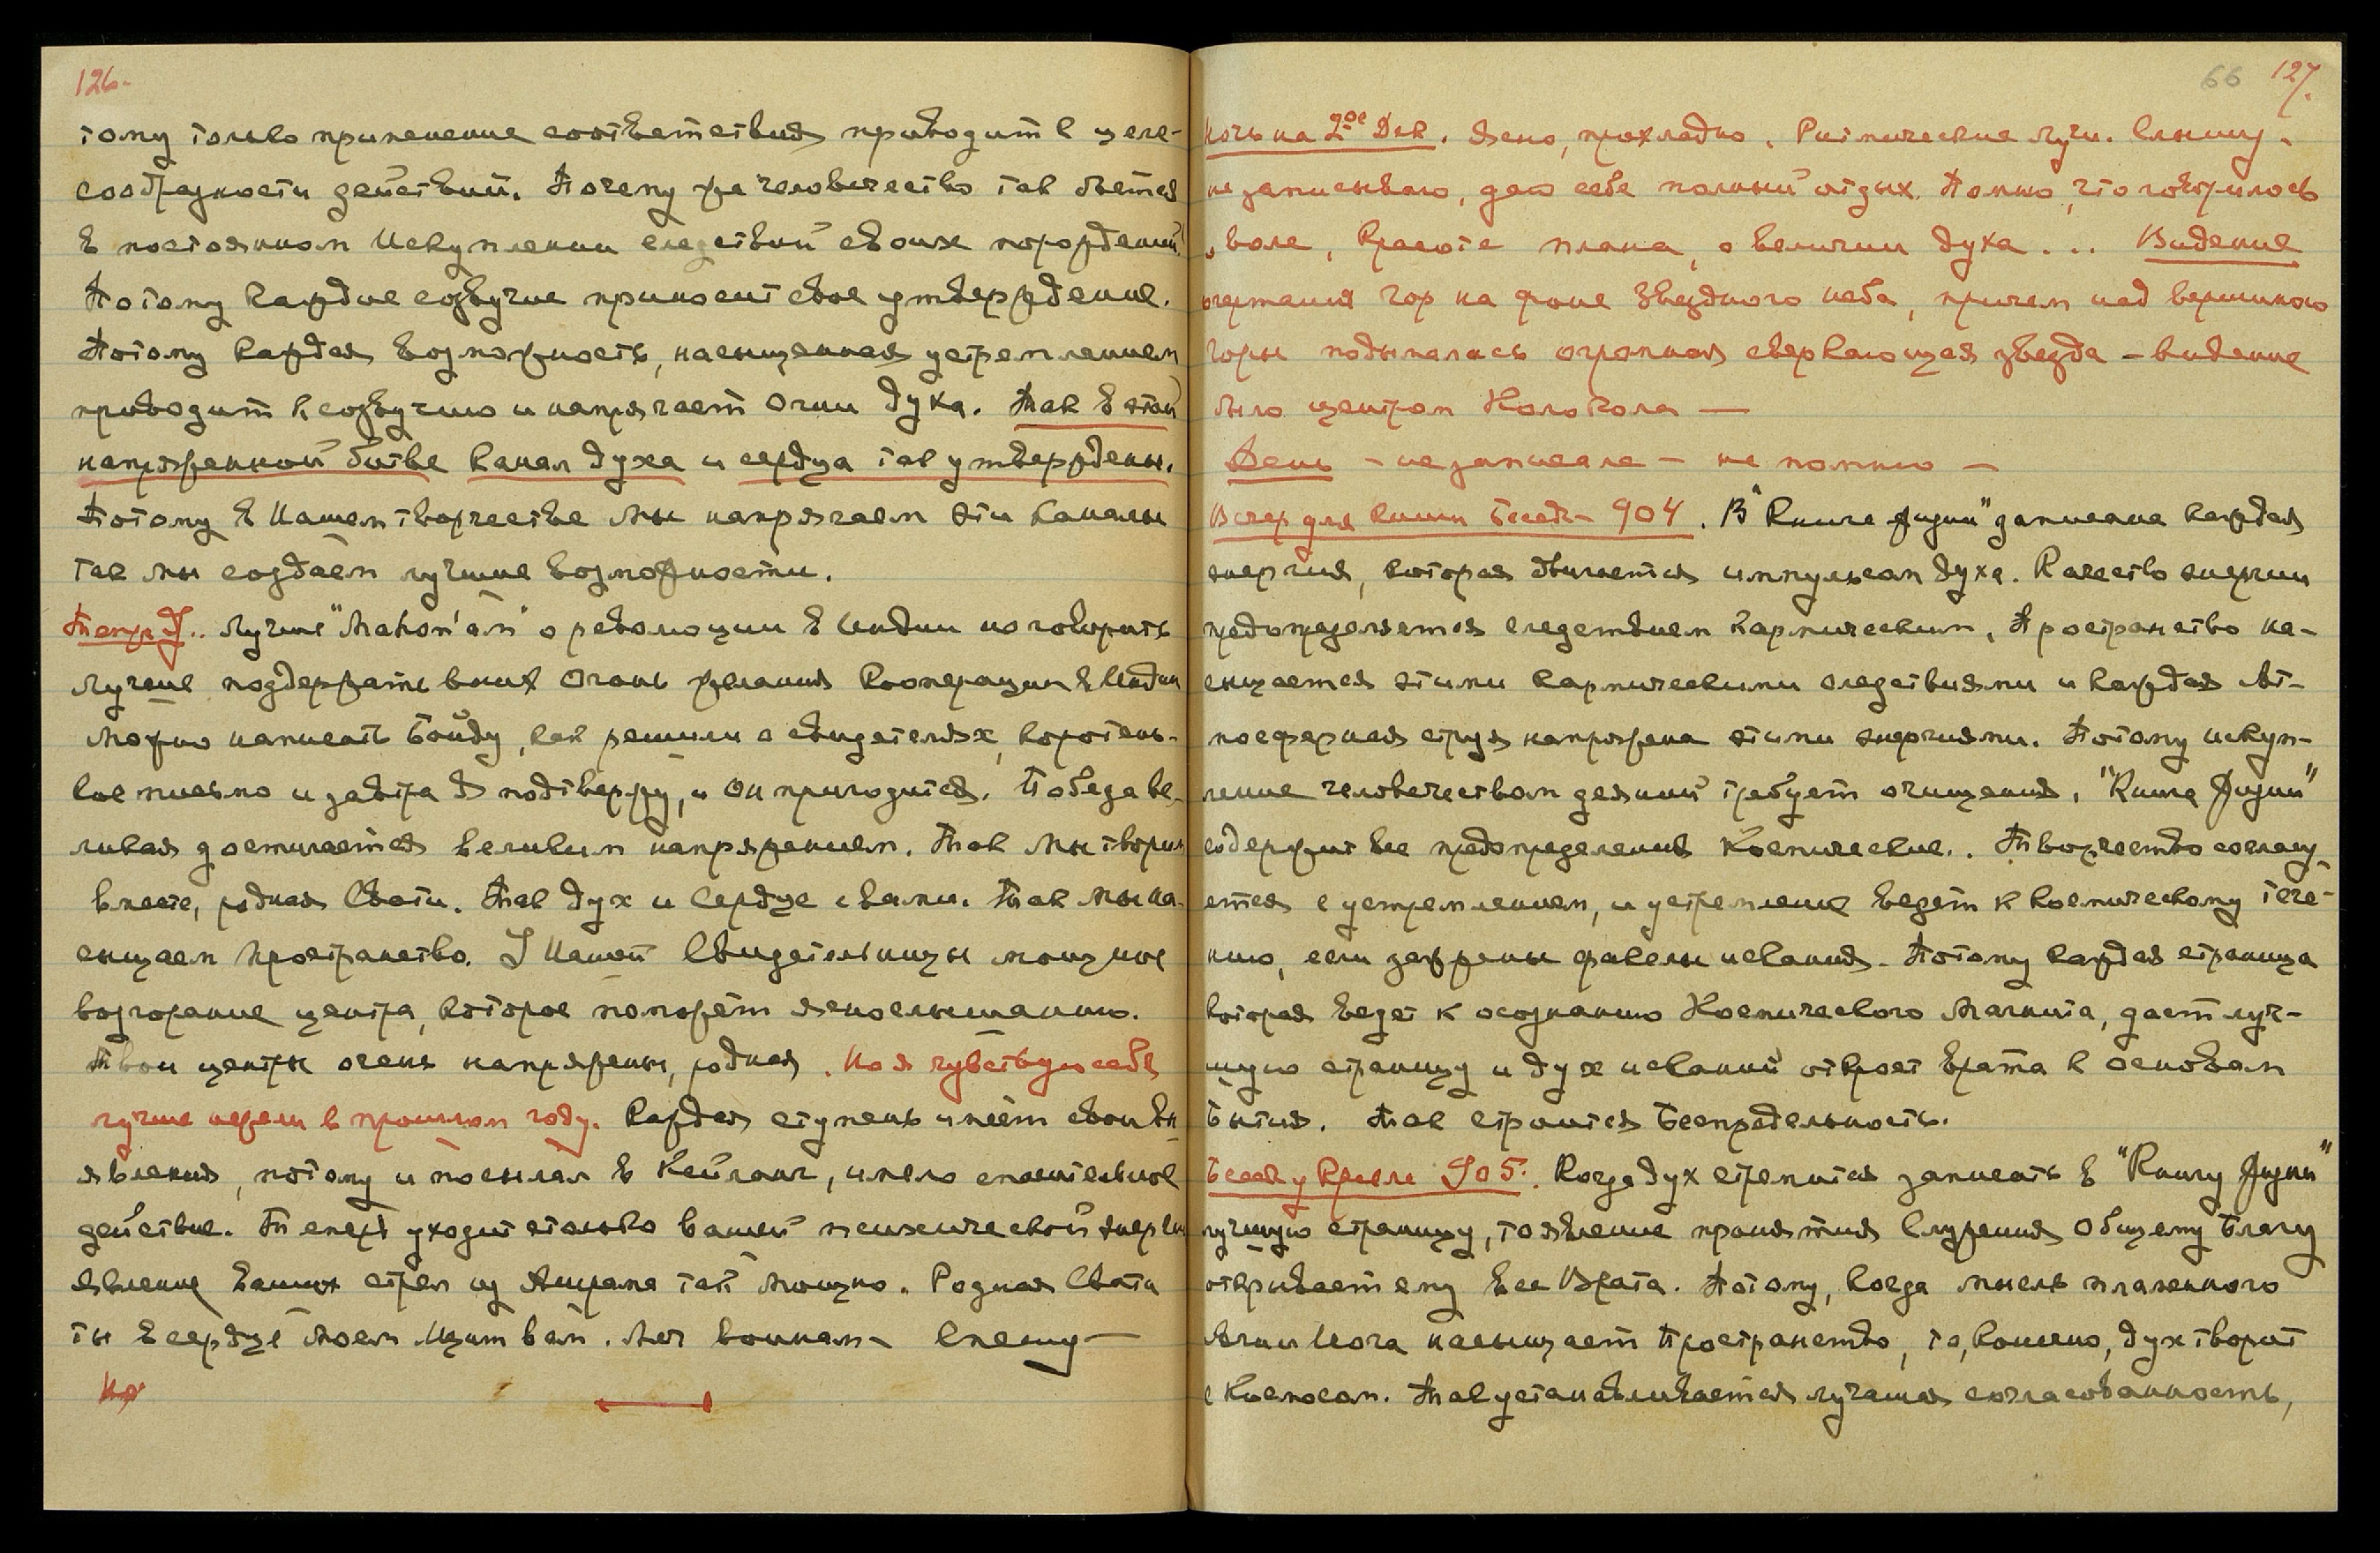 126.
тому только применение соответствия приводит к целе-
сообразности действий. Почему же человечество так бьется
в постоянном Искуплении следствий своих порождений.
Потому каждое созвучие приносит свое утверждение.
Потому каждая возможность, насыщенная устремлением
приводит к созвучию и напрягает Огни духа. Так в этой
напряженной битве канал духа и сердца так утверждены.
Потому в Нашем творчестве Мы напрягаем эти каналы
так мы создаем лучшие возможности.
Лучше о революции в Индии не говорить
лучше поддержать в них Огонь желания Кооперации в Индии
Можно написать Бойду, как решили о свидетелях, коротень-
кое письмо и завтра Я подтвержу, и Он пригодится. Победа ве-
ликая достигается великим напряжением. Так Мы творим
вместе, родная Свати. Так дух и Сердце с вами. Так Мы на-
сыщаем пространство. У Нашей Свидетельницы мощное
возгорание центра, которое поможет яснослышанию.
Твои центры очень напряжены, родная. Но я чувствую себя
лучше нежели в прошлом году. Каждая ступень имеет свои
явления, потому и посылал в Кейланг, имело спасительное
действие. Теперь уходит столько вашей психической энергии
явление ваших стрел из Ашрама так мощно. Родная Свати
ты в сердце Моем Щит вам. Меч воинам - Спешу -
66 127.
Ночь на 2ое Дек. Ясно, прохладно. Ритмические лучи. Слышу,
не записываю, даю себе полный отдых. Помню, что говорилось
о воле, Красоте плана, о величии духа... Видение
очертания гор на фоне Звездного неба, причем над вершиною
Горы подымалась огромная сверкающая звезда - видение
было центром Колокола —
День - не записала - не помню -
Вечер для книги Бесед - 904. В "Книге Жизни" записана каждая
энергия, которая движется импульсом духа. Качество энергии
предопределяется следствием кармическим. Пространство на-
сыщается этими кармическими следствиями и каждая Ат-
мосферная струя напряжена этими энергиями. Потому искуп-
ление человечеством деяний требует очищения. "Книга Жизни"
содержит все предопределения Космические.. Творчество согласу-
ется с устремлением, и устремление ведет к космическому тече-
нию, если зажжены факелы искания. Потому каждая страница
которая ведет к осознанию Космического Магнита, дает луч-
шую страницу и дух исканий откроет врата к основам
Бытия. Так строится Беспредельность.
905. Когда дух стремится записать в "Книгу Жизни"
лучшую страницу, то явление принятия Служения Общему Благу
открывает ему все Врата. Потому, когда мысль пламенного
Агни Йога насыщает Пространство, то, конечно, дух творит
с Космосом. Так устанавливается лучшая согласованность,